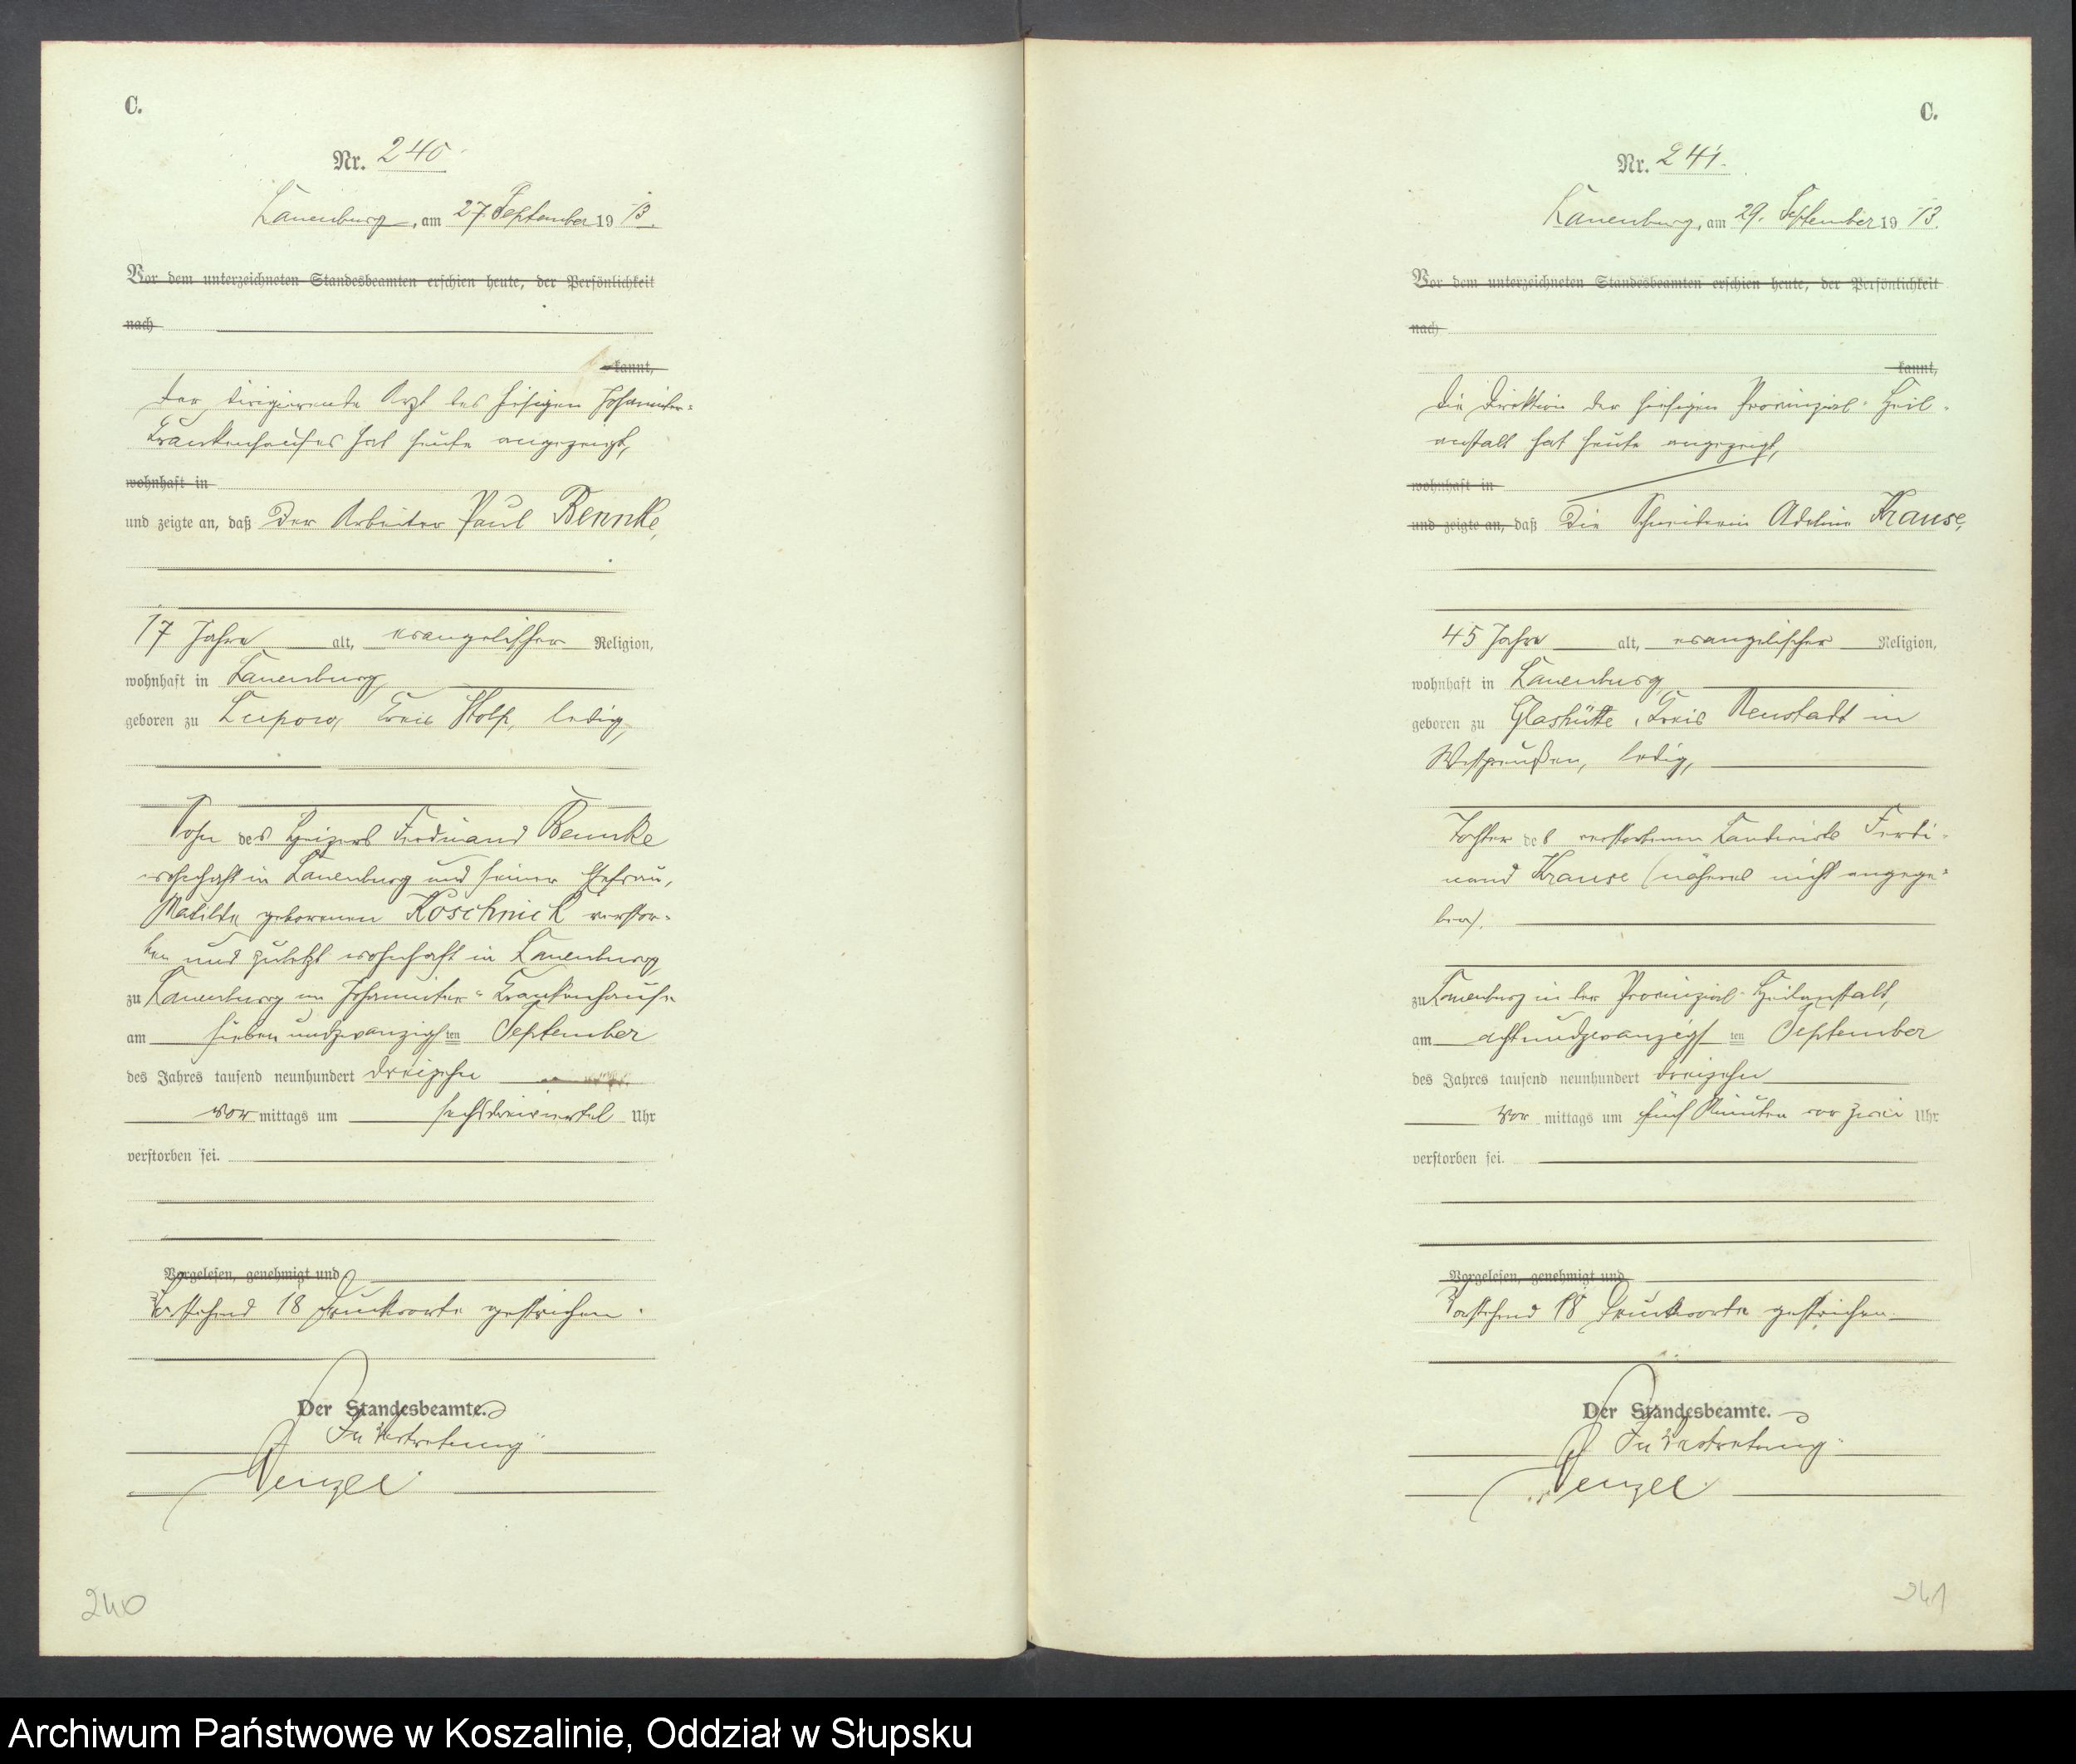 C.
Nr. 240
Lauenburg, am 27. September 1913.
Vor dem unterzeichneten Standesbeamten erschien heute, der Persönlichkeit
nach
kannt,
Der dirigierende Arzt des hiesigen Johanniter-
Krankenhauses hat heute angezeigt,
wohnhaft in
und zeigte an, daß der Arbeiter Paul Bennke,
17 Jahre alt, evangelischer Religion,
wohnhaft in Lauenburg,
geboren zu Lupow, Kreis Stolp, ledig,
Sohn des Heizers Ferdinand Bennke
wohnhaft in Lauenburg und seiner Ehefrau,
Matilde geborenen Koschnick verstor-
ben und zuletzt wohnhaft in Lauenburg,
zu Lauenburg im Johanniter-Krankenhause
am siebenundzwanzigsten September
des Jahres tausend neunhundert dreizehn
vor mittags um sechsdreiviertel Uhr
verstorben sei.
Vorgelesen, genehmigt und
Vorstehend 18 Druckworte gestrichen.
Der Standesbeamte.
In Vertretung
Wenzel
240
C.
Nr. 241.
Lauenburg, am 29. September 1913.
Vor dem unterzeichneten Standesbeamten erschien heute, der Persönlichkeit
nach
kannt,
Die Direktion der hiesigen Provinzial-Heil-
anstalt hat heute angezeigt,
wohnhaft in
und zeigte an, daß die Schneiderin Adeline Krause,
45 Jahre alt, evangelischer Religion,
wohnhaft in Lauenburg
geboren zu Glashütte, Kreis Neustadt in
Westpreußen, ledig,
Tochter des verstorbenen Landwirts Ferdi-
nand Krause (näheres nicht angege-
ben).
zu Lauenburg in der Provinzial-Heilanstalt,
am achtundzwanzigsten September
des Jahres tausend neunhundert dreizehn
vor mittags um fünf Minuten vor zwei Uhr
verstorben sei.
Vorgelesen, genehmigt und
Vorstehend 18 Druckworte gestrichen.
Der Standesbeamte.
In Vertretung
Wenzel
241
Archiwum Państwowe w Koszalinie, Oddział w Słupsku